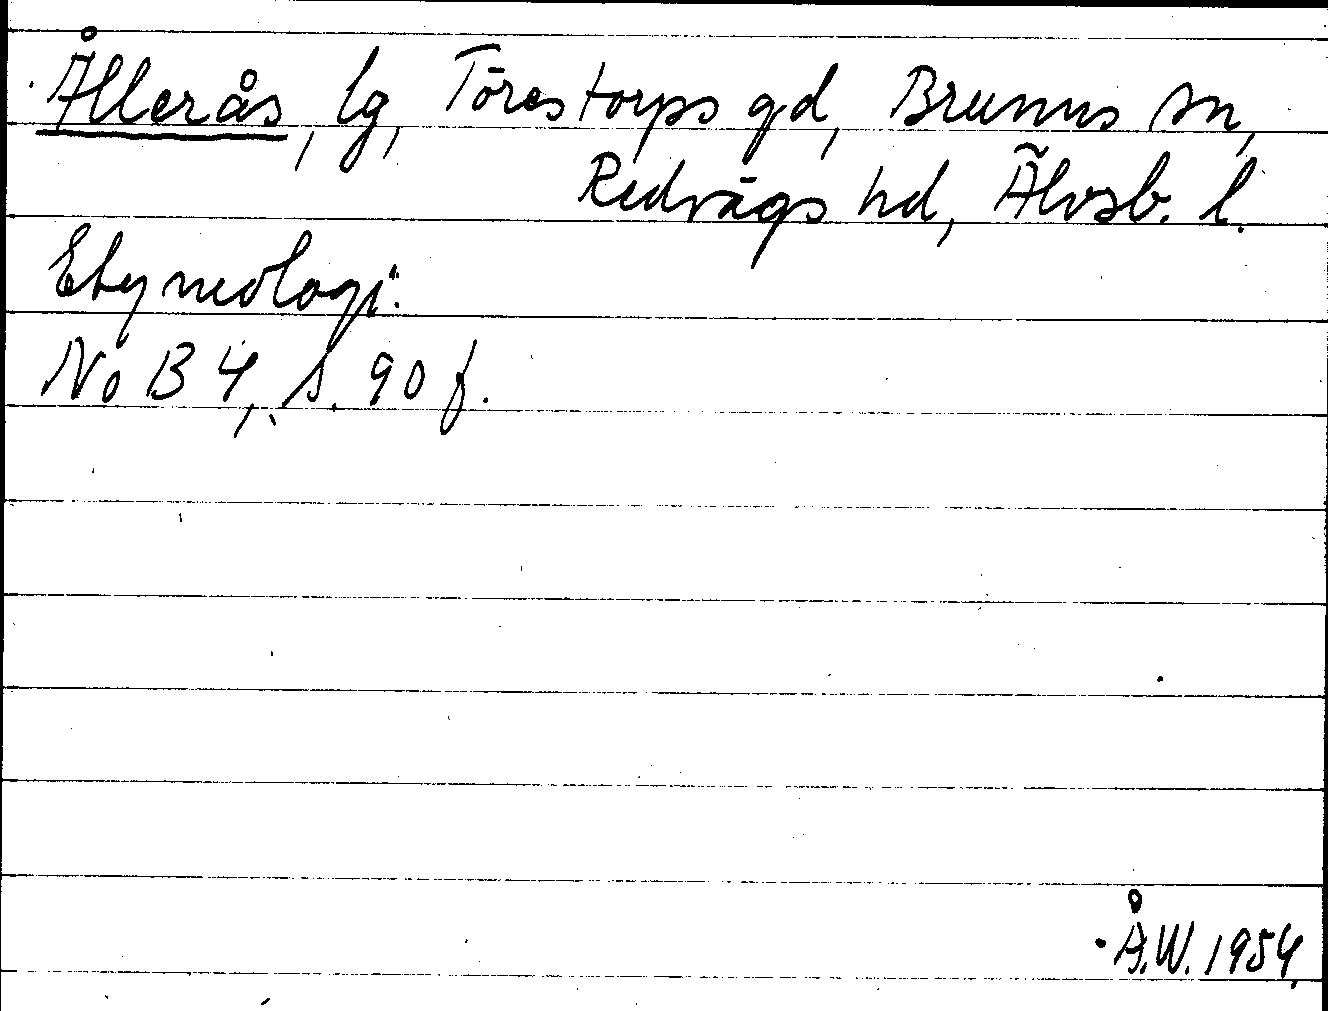 Ållerås, lg, Törestorps gd, Brunns sn,
Redvägs hd, Älvsb. l.
Etymologi:
NoB 4, s. 90 f.
Å.W. 1954